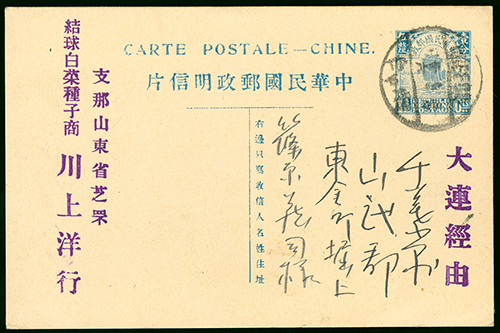 CARTE POSTALE—CHINE.
中華民國郵政明信片
大連經由
千葉県
山武郡
東金町堀上
篠原 司様
右邊只寫收信人名姓住址
支那山東省芝罘
結球白菜種子商 川上洋行